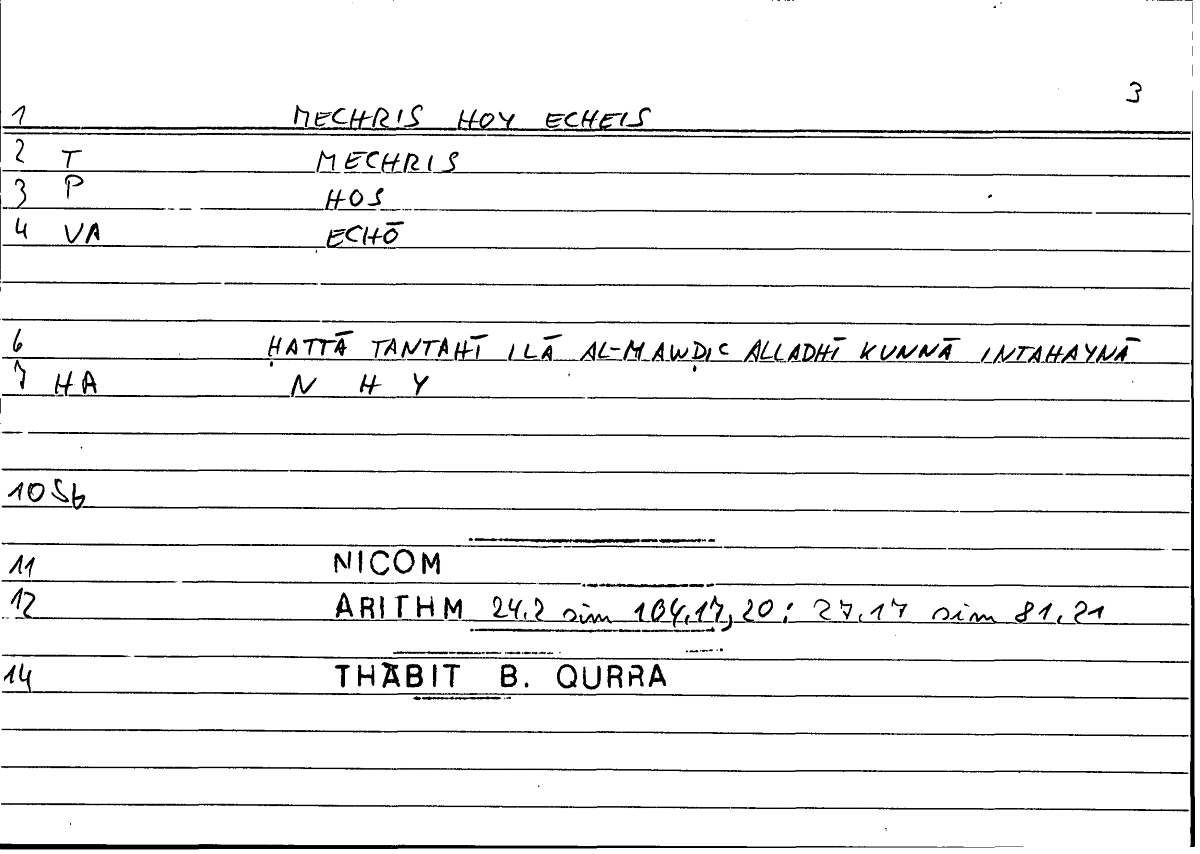 3
1 MECHRIS HOY ECHEIS
2 T MECHRIS
3 P HOS
4 VA ECHŌ
6 ḤATTĀ TANTAHĪ ILĀ AL-MAWḌIC ALLADHĪ KUNNĀ INTAHAYNĀ
7 HA N H Y
10 Sb
11 NICOM
12 ARITHM 24.2 sim 104.17,20; 27.17 sim 81.21
14 THĀBIT B. QURRA